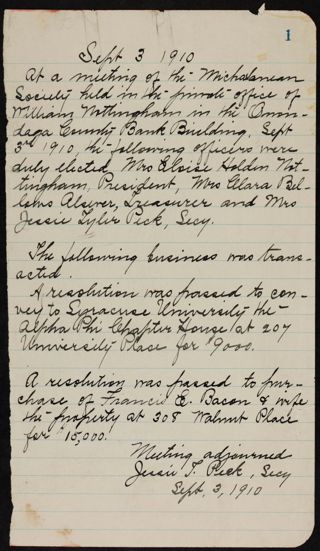 1
Sept 3 1910
At a meeting of the Michaelanean
Society held in the private office of
William Nottingham in the Onon-
daga County Bank Building, Sept
3rd 1910, the following officers were
duly elected, Mrs Eloise Holden Not-
tingham, President, Mrs Clara Bel-
lows Alsever, Treasurer and Mrs
Jessie Tyler Peck, Secy.
The following business was trans-
acted.
A resolution was passed to con-
vey to Syracuse University the
Alpha Phi Chapter House at 207
University Place for $9000.
A resolution was passed to pur-
chase of Francis E. Bacon & wife
the property at 308 Walnut Place
for $15,000.
Meeting adjourned
Jessie T. Peck, Secy
Sept. 3, 1910